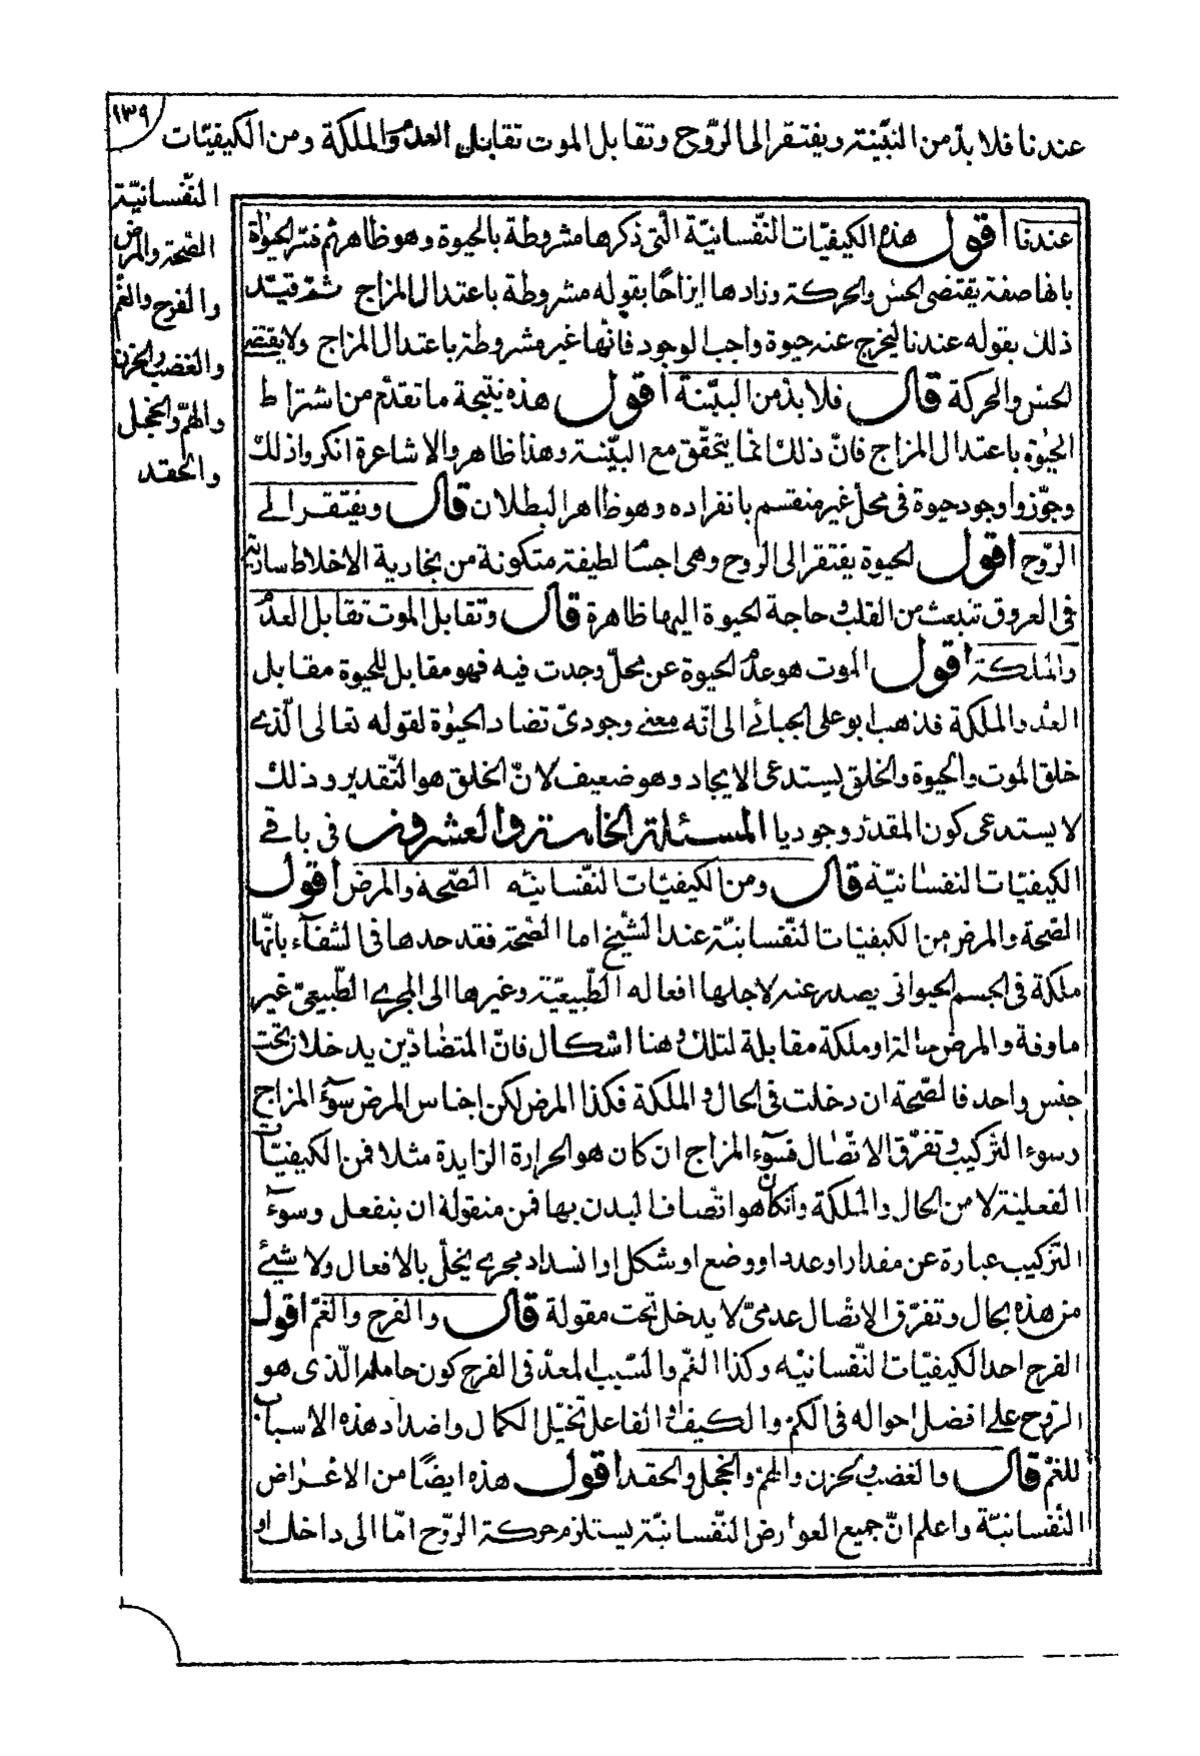 ١٣٩
عندنا فلا بدّ من البنية ويفتقر الى الرّوح وتقابل الموت تقابل العدم والملكة ومن الكيفيّات
النّفسانيّة
الصّحة والمرض
والفرح والغمّ
والغضب والحزن
والهمّ والخجل
والحقد
عندنا اقول هذه الكيفيّات النّفسانيّة الّتى ذكرها مشروطة بالحيوة وهو ظاهر ثم فسّر الحيوة
بانها صفة يقتضى الحسّ والحركة وزادها ايزاحًا بقوله مشروطة باعتدال المزاج ثمّ قيّد
ذلك بقوله عندنا ليخرج عنه حيوة واجب الوجود فانّها غير مشروطة باعتدال المزاج ولا يقتضى
الحسّ والحركة قال فلا بدّ من البيّنة اقول هذه نتيجة ما تقدّم من اشتراط
الحيوة باعتدال المزاج فانّ ذلك انّما يتحقّق مع البيّنة وهذا ظاهر والاشاعرة انكروا ذلك
وجوّزوا وجود حيوة فى محلّ غير منقسم بانفراده وهو ظاهر البطلان قال ويفتقر الى
الرّوح اقول الحيوة يفتقر الى الرّوح وهى اجسام لطيفة متكونة من بخارية الاخلاط سارية
فى العروق تنبعث من القلب وحاجة الحيوة اليها ظاهرة قال وتقابل الموت تقابل العدم
والملكة اقول الموت هو عدم الحيوة عن محلّ وجدت فيه فهو مقابل للحيوة مقابل
العدم والملكة فذهب ابو على الجبائى الى انّه معنى وجودىّ تضاد الحيوة لقوله تعالى الّذى
خلق الموت والحيوة والخلق يستدعى الايجاد وهو ضعيف لانّ الخلق هو التّقدير وذلك
لا يستدعى كون المقدّر وجوديا المسئلة الخامسة والعشرون فى باقى
الكيفيّات النفسانيّة قال ومن الكيفيّات النّفسانيّه الصّحة والمرض اقول
الصّحة والمرض من الكيفيّات النّفسانيّة عند الشيخ اما الصّحة فقد حدها فى الشفآء بانّها
ملكة فى الجسم الحيوانى يصدر عنه لاجلها افعاله الطّبيعيّة وغيرها الى المجرى الطّبيعىّ غير
ماوفة والمرض حالة او ملكة مقابلة لتلك وهنا اشكال فانّ المتضادّين يدخلان تحت
جنس واحد فالصّحة ان دخلت فى الحال والملكة فكذا المرض لكن اجناس المرض سوء المزاج
وسوء التّركيب وتفرّق الاتّصال فسوء المزاج ان كان هو الحرارة الزايدة مثلا فمن الكيفيّات
الفعلية لا من الحال والملكة وان كان هو اتّصاف البدن بها فمن مقولة ان ينفعل وسوء
التّركيب عبارة عن مقدار او عدد او وضع او شكل او انسداد مجرى يخلّ بالافعال ولا شىء
من هذه بحال وتفرّق الاتّصال عدمىّ لا يدخل تحت مقولة قال والفرح والغمّ اقول
الفرح احد الكيفيّات النّفسانيّه وكذا الغمّ والسّبب المعدّ فى الفرح كون حامله الّذى هو
الرّوح على افضل احواله فى الكمّ والكيف والفاعل تخيّل الكمال واضداد هذه الاسباب
للغمّ قال والغضب والحزن والهمّ والخجل والحقد اقول هذه ايضًا من الاعراض
النّفسانيّة واعلم انّ جميع العوارض النّفسانيّة يستلزم حركة الرّوح امّا الى داخل او